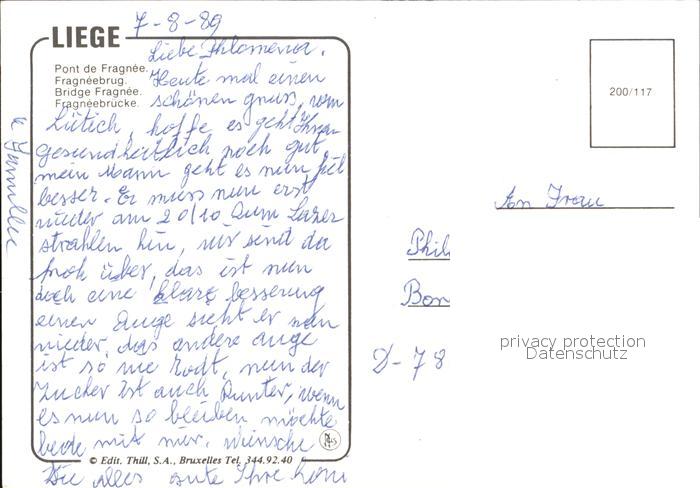 7-8-89
LIEGE
Pont de Fragnée.
Fragnéebrug.
Bridge Fragnée.
Fragnéebrücke.
Liebe Philomena.
Heute mal einen
schönen gruss, vom
Lütich, hoffe es geht Ihnen
gesundheitlich noch gut,
mein Mann geht es nun
besser. Er muss nun erst
wieder am 20/10 zum Lazer
strahlen hin, wir send da
froh über, das ist nun
doch eine besserung
einen Auge sieht er nun
wieder, das andere auge
ist so wie Todt, nun der
Zucker ist auch Runter, wenn
es nun so bleiben möchte
bede mit mir. wünsche
alles gute Ihre
200/117
An Frau
Phil
Bon
D-78
privacy protection
Datenschutz
© Edit. Thill, S.A., Bruxelles Tel. 344.92.40